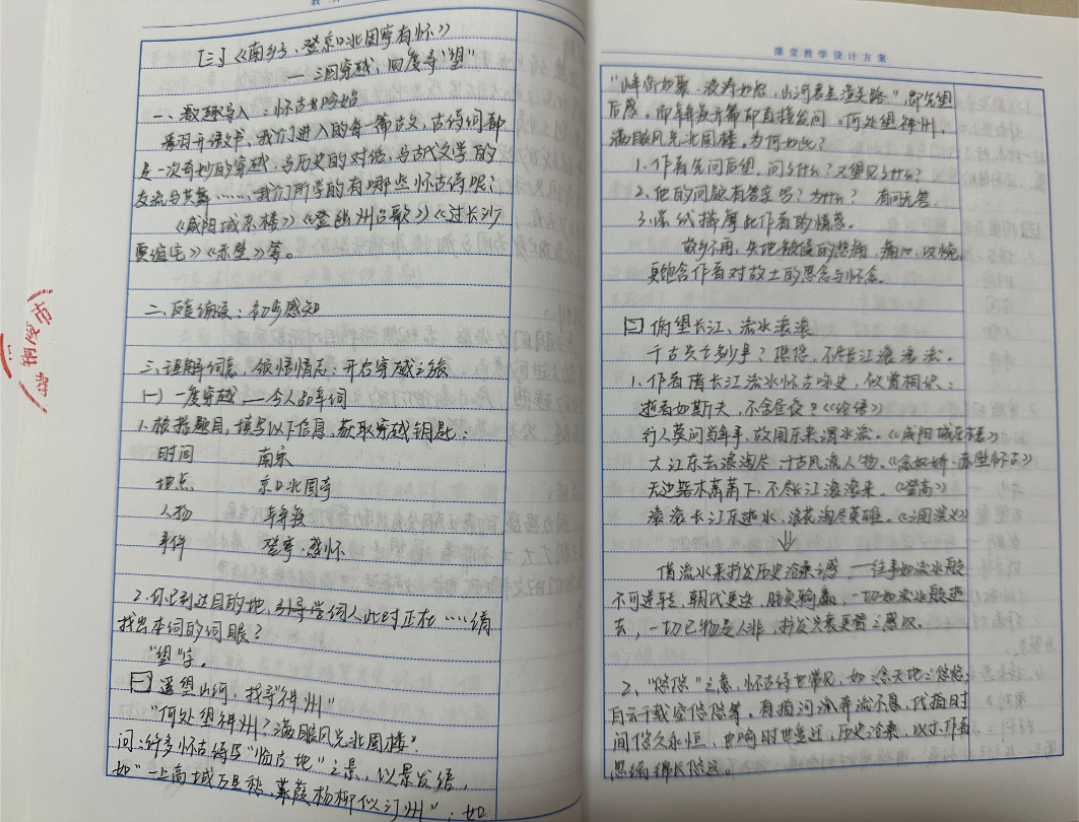 [三]《南乡子·登京口北固亭有怀》
——三国穿越，四度寻"望"
一、激趣导入：怀古
翻开语文书，我们进入的每一篇古文，古诗词都
是一次奇妙的穿越，与历史的对话，与古代文学的
交流与共舞……，我们所学的有哪些怀古诗呢？
《咸阳城东楼》《登幽州台歌》《过长沙
贾谊宅》《赤壁》等。
二、反复诵读：初步感知
三、理解词意、领悟情志：开启穿越之旅
(一) 一度穿越，——今人到宋词
1. 根据题目，填写以下信息，获取穿越钥匙：
时间 南宋
地点 京口北固亭
人物 辛弃疾
事件 登亭·感怀
2. 你已到达目的地，词人此时正在……请
找出本词的词眼？
"望"字。
[一] 遥望山河，找寻"神州"
"何处望神州？满眼风光北固楼。"
问：许多怀古诗写"临古地"之景，以景发情，
如"一上高城万里愁，蒹葭杨柳似汀州"；如
课堂教学设计方案
"峰峦如聚，波涛如怒，山河表里潼关路。"，即先望
后感。而辛弃疾开篇即直接发问，何处望神州，
满眼风光北固楼。为何如此？
1. 作者先问后望，问了什么？又望见了什么？
2. 他的问题有答案吗？为什么？ 有问无答
3. 深式揣摩此作者的情感。
故乡不再，失地难复的悲痛，痛心、
更饱含作者对故土的思念与怀念。
[二] 俯望长江，流水滚滚
千古兴亡多少事？悠悠，不尽长江滚滚流。
1. 作者借长江流水怀古咏史，似曾相识：
逝者如斯夫，不舍昼夜？《论语》
行人莫问当年事，故国东来渭水流。《咸阳城东楼》
大江东去浪淘尽，千古风流人物。《念奴娇·赤壁怀古》
无边落木萧萧下，不尽长江滚滚来。《登高》
滚滚长江东逝水，浪花淘尽英雄。《三国演义》
⇓
借流水来抒发历史沧桑之感，一往事如流水般
不可逆转，朝代更迭，胜负输赢，一切如流水般逝
去，一切已物是人非，抒发兴衰更替之感叹。
2、"悠悠"之意，怀古诗也常见，如念天地之悠悠，
白云千载空悠悠等。有指河流奔流不息，代指时
间悠久永恒，也喻时世变迁，历史沧桑，以示作者
思绪绵长悠远。